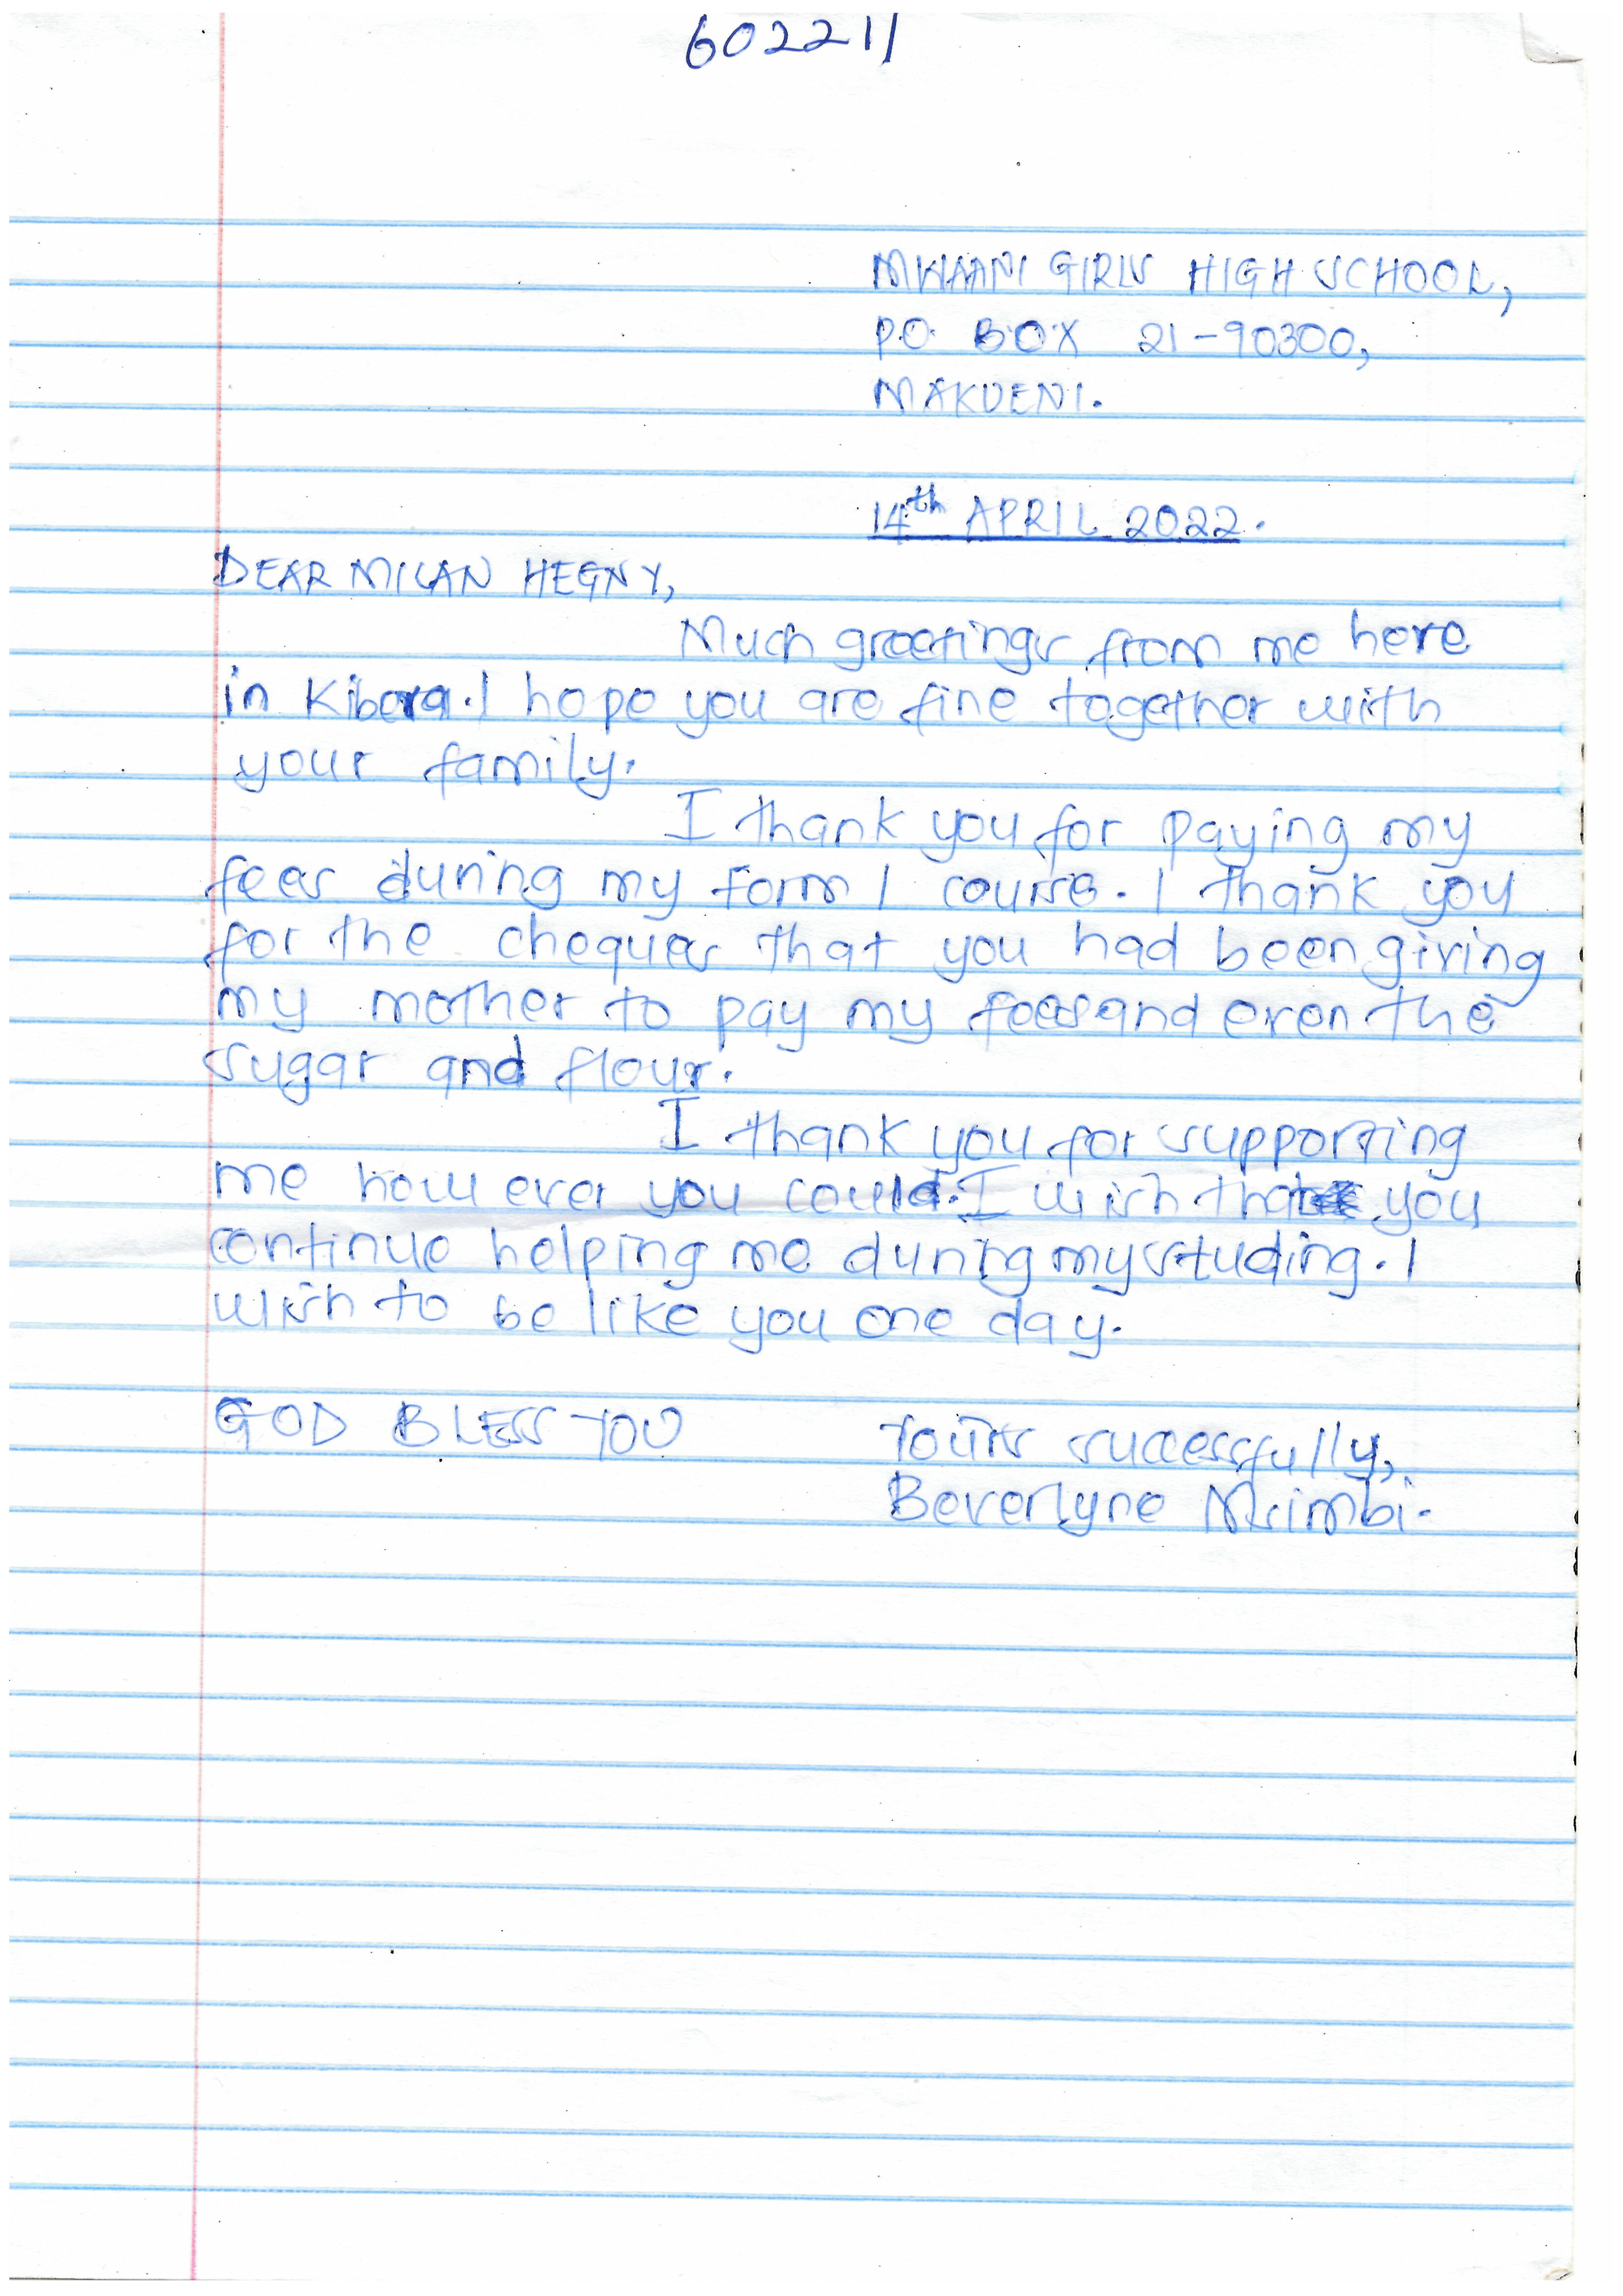 602211
MWAANI GIRLS HIGH SCHOOL,
P.O. BOX 21-90300,
MAKUENI.
14th APRIL 2022.
DEAR MILAN HEGNY,
Much greetings from me here
in Kibera. I hope you are fine together with
your family.
I thank you for paying my
fees during my Form 1 course. I thank you
for the cheques that you had been giving
my mother to pay my fees and even the
sugar and flour.
I thank you for supporting
me how ever you could. I wish that you
continue helping me during my studing. I
wish to be like you one day.
GOD BLESS YOU Yours successfully,
Beverlyne